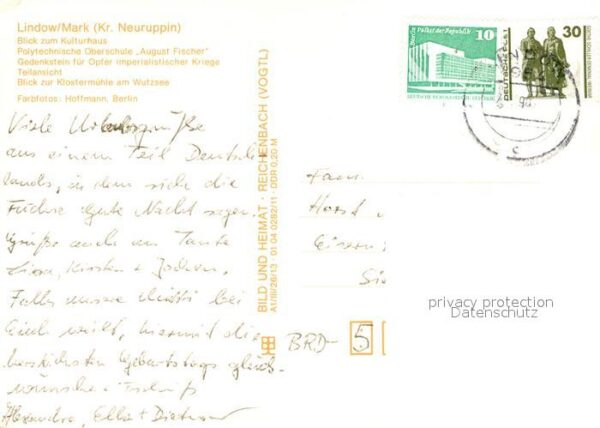 Lindow/Mark (Kr. Neuruppin)
Blick zum Kulturhaus
Polytechnische Oberschule „August Fischer"
Gedenkstein für Opfer imperialistischer Kriege
Teilansicht
Blick zur Klostermühle am Wutzsee
Farbfotos: Hoffmann, Berlin
Viele Urlaubsgrüße
aus einem Teil Deutsch-
lands, in dem sich die
Füchse Gute Nacht sagen.
Grüße auch an Tante
Kirsten + Jochen.
Falls unsere bei
Euch weilt, hiermit die
herzlichsten Geburtstagsglück-
wünsche
Alexandra, Ella + Dietmar
BILD UND HEIMAT · REICHENBACH (VOGTL)
A1/III/26/13 · 01 04 0282/11 · DDR 0,20 M
Berlin, Palast der Republik
10
30
Fam.
Horst
privacy protection
Datenschutz
BRD- 5